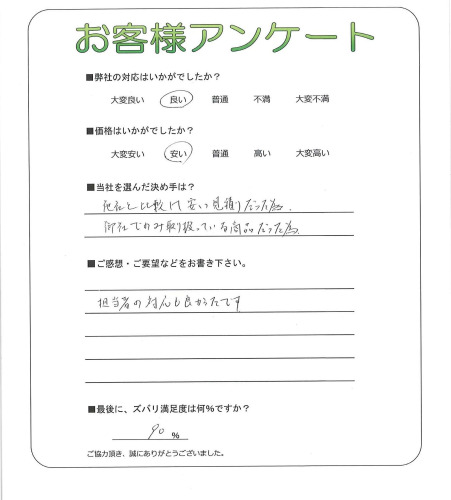 お客様アンケート
■弊社の対応はいかがでしたか？
大変良い 良い 普通 不満 大変不満
■価格はいかがでしたか？
大変安い 安い 普通 高い 大変高い
■当社を選んだ決め手は？
他社と比較して安い見積りだった為、
御社でのみ取り扱っている商品だった為、
■ご感想・ご要望などをお書き下さい。
担当者の対応も良かったです
■最後に、ズバリ満足度は何%ですか？
90 %
ご協力頂き、誠にありがとうございました。